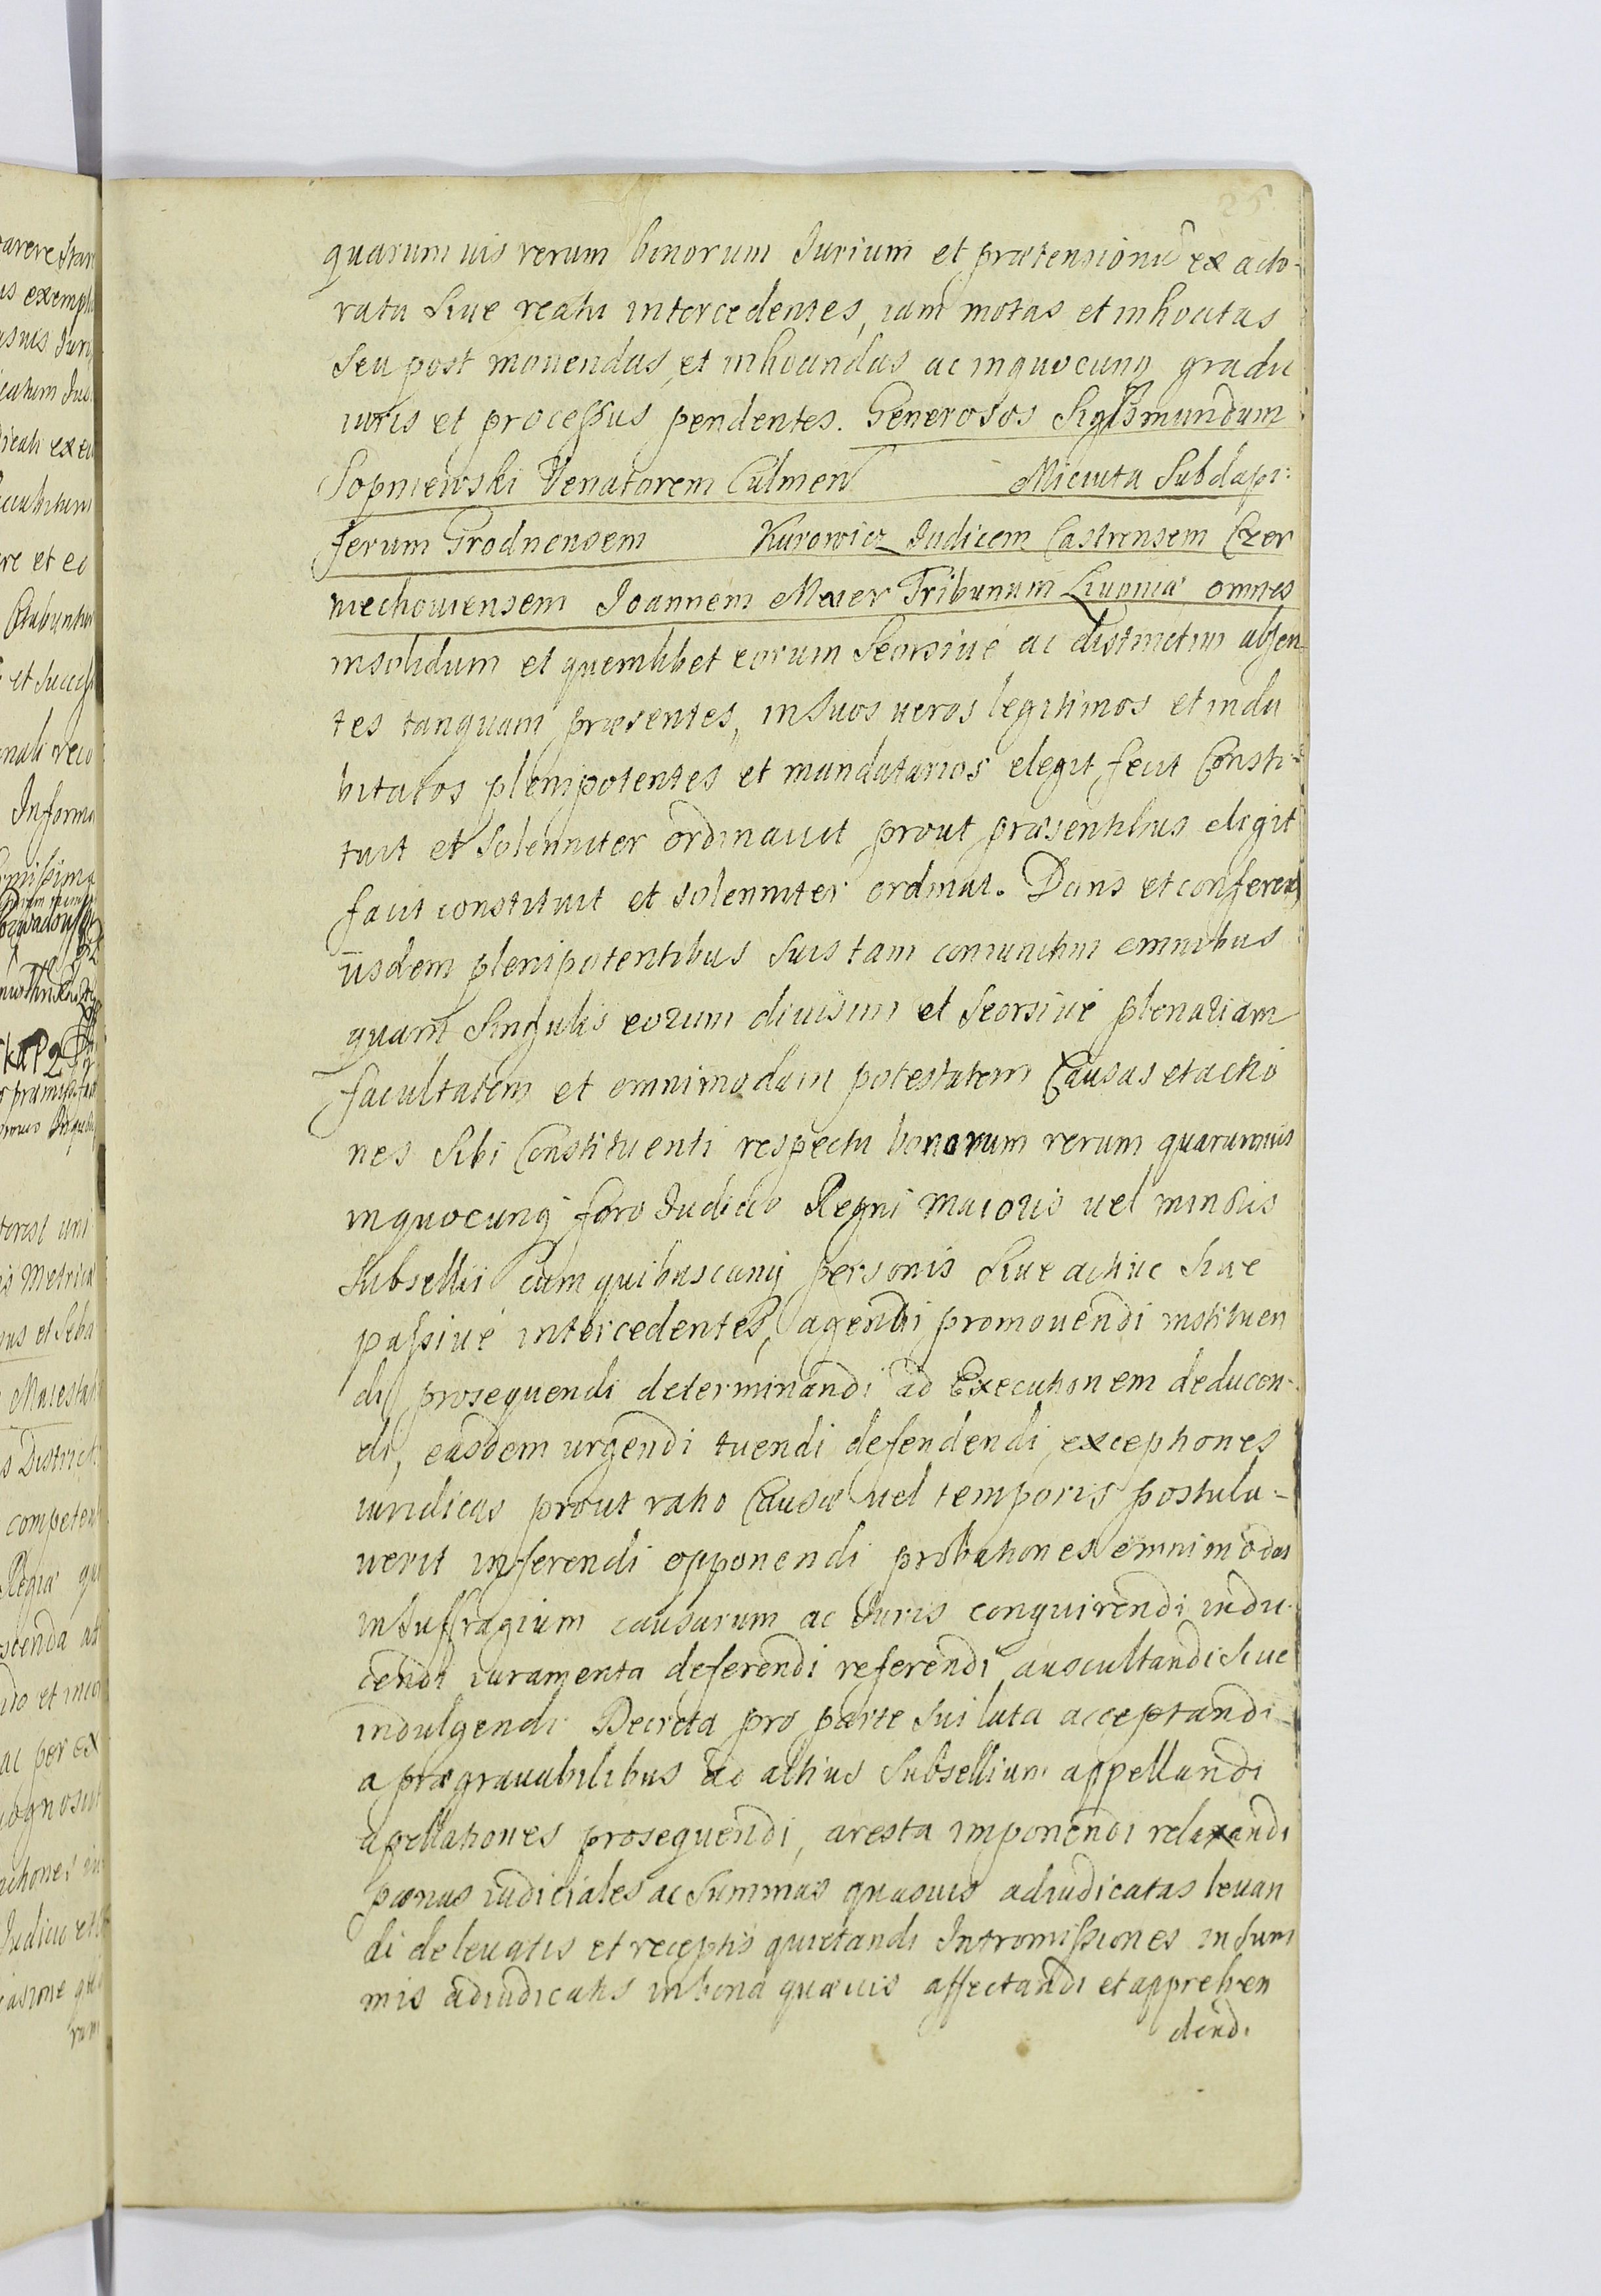 25
quarum uis rerum bonorum Iurium et prætensionū ex acto-
ratu Siue reatu intercedentes, iam motas et inhoatas
Seu post mouendas, et inhoandas ac inquocunq gradu
iuris et processus pendentes. Generosos Sigismundum
Sopniewski Venatorem Culmen Miciuta Subdapi:
ferum Grodnensem Kurowicz Iudicem Castrensem Czer
niechouiensem Ioannem Meier Tribunum Liuoniæ omnes
insolidum et quemlibet eorum Seorsiué ac distinctim absen-
tes tanquam præsentes, insuos ueros legitimos et indu
bitatos plenipotentes et mandatarios elegit fecit Consti-
tuit et Solenniter ordinauit prout præsentibus eligit
facit constituit et solenniter ordinat. Dans et conferens
iisdem plenipotentibus Suis tam coniunctim omnibus
quam Singulis eorum diuisim et Seorsiué plenariam
facultatem et omnimodam potestatem Causas et actio
nes Sibi Constituenti respectu bonorum rerum quarumuis
inquocunq foro Iudicio Regni maioris uel minoris
Subsellii Cum quibuscunq personis Siue actiue Siue
passiué intercedentes, agendi promouendi instituen
di prosequendi determinandi ad Executionem deducen-
di, easdem urgendi tuendi defendendi, exceptiones
iuridicas prout ratio Causæ uel temporis postula-
uerit inferendi opponendi probationes omnimodas
insuffragium causarum ac Iuris conquirendi indu-
cendi iuramenta deferendi referendi auscultandi Siue
indulgendi Decreta pro parte Sui lata acceptandi
a prægrauabilibus ad altius Subsellium appellandi
apellationes prosequendi, aresta imponendi relaxandi
pænas iudiciales ac Summas quasuis adiudicatas leuan
di deleuatis et receptis quietandi Intromissiones insum
mis adiudicatis inbona quæuis affectandi et apprehen
dendi